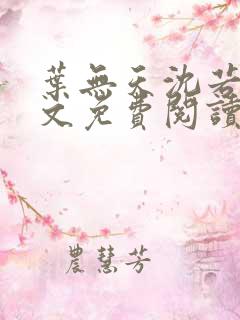 葉無天沈若
文免費閱讀
農慧芳